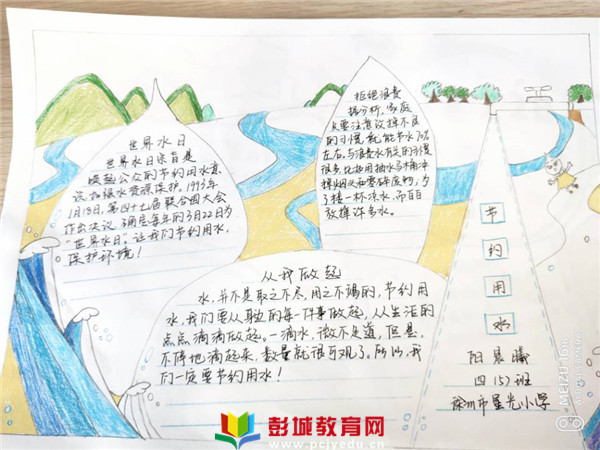 世界水日
世界水日宗旨是
唤起公众的节约用水意
识，加强水资源保护。1993年
1月18日，第四十七届联合国大会
作出决议，确定每年的3月22日为
“世界水日”。让我们节约用水，
保护环境！
拒绝浪费
据分析，家庭
只要注意改掉不良
的习惯，就能节水70%
左右，与浪费水有关的习惯
很多，比如：用抽水马桶冲
掉烟头和零碎废物，为
了接一杯凉水，而白白
放掉许多水。
从我做起
水，并不是取之不尽，用之不竭的，节约用
水，我们要从身边的每一件事做起，从生活的
点点滴滴做起。一滴水，微不足道，但是，
不停地滴起来，数量就很可观了。所以，我
们一定要节约用水！
节
约
用
水
阳晨曦
四(5)班
深圳市星光小学
MEIZU 16th
彭城教育网
www.pcjyedu.cn